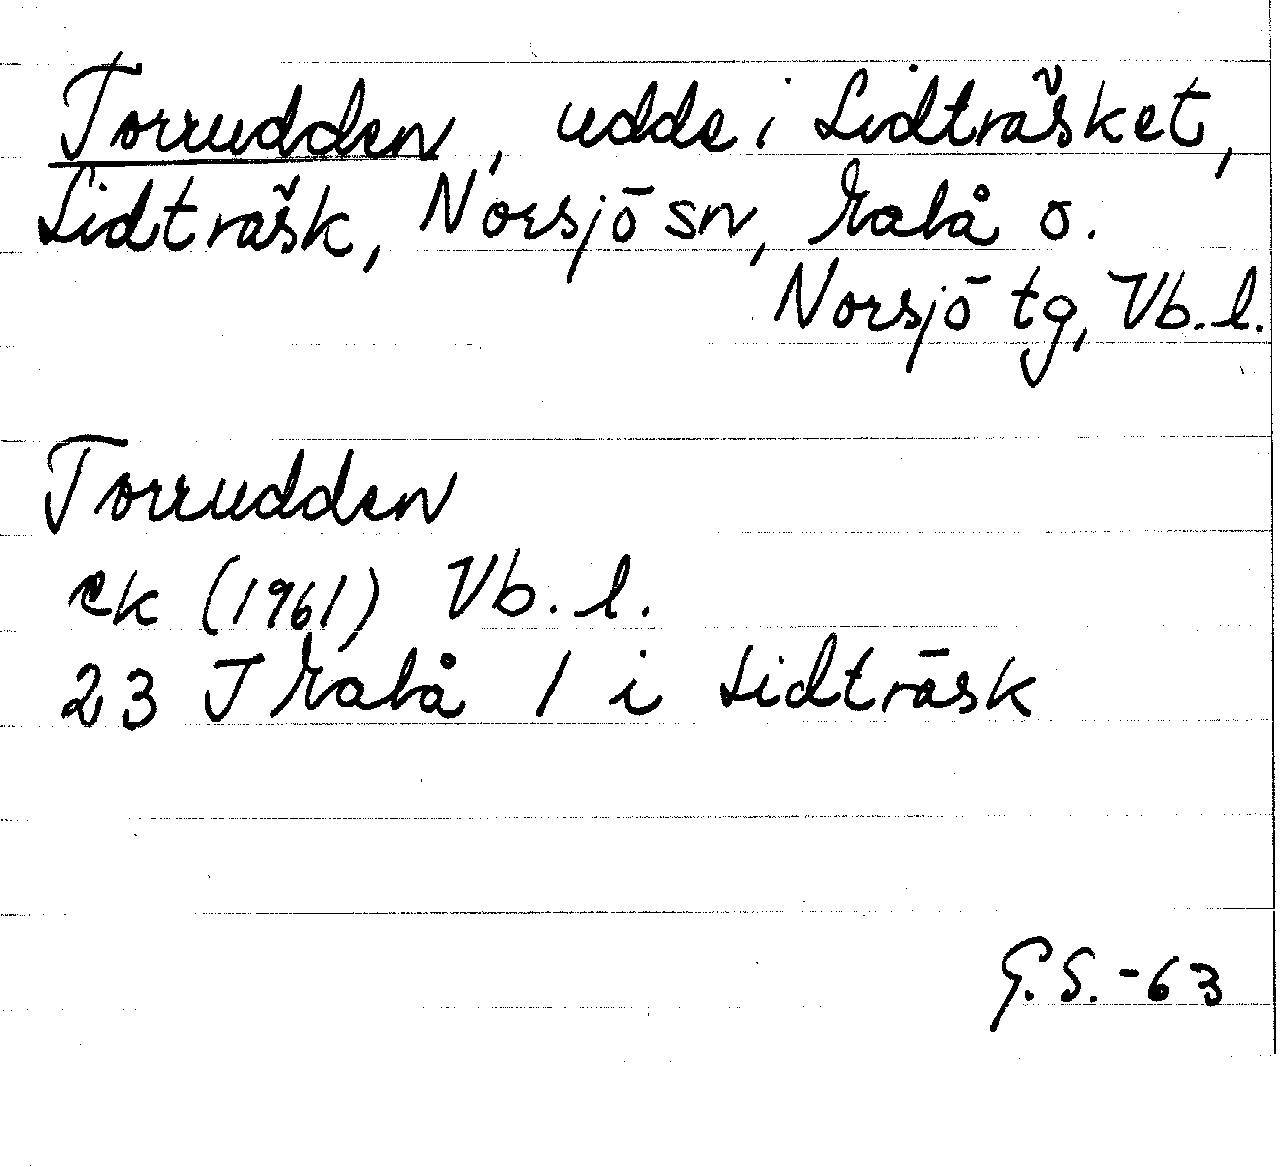 Torrudden, udde i Lidträsket,
Lidträsk, Norsjö sn, Malå o.
Norsjö tg, Vb. l.
Torrudden
ek (1961) Vb. l.
23 J Malå 1 i Lidträsk
G. S. - 63